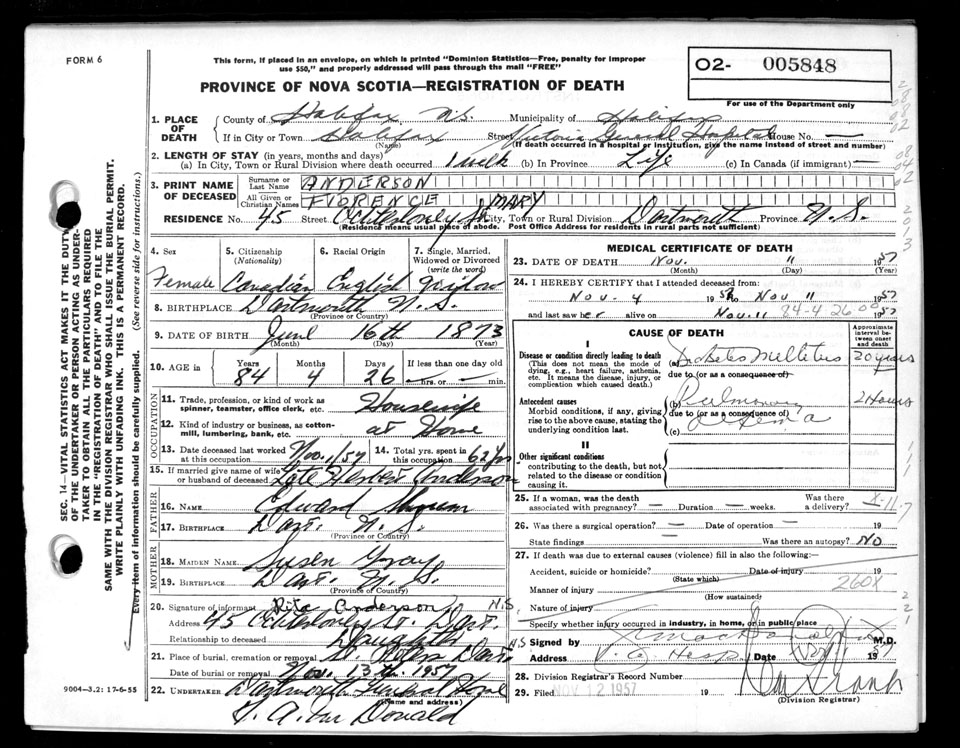 FORM 6
This form, if placed in an envelope, on which is printed "Dominion Statistics—Free, penalty for improper
use $50," and properly addressed will pass through the mail "FREE"
O2- 005848
For use of the Department only
PROVINCE OF NOVA SCOTIA—REGISTRATION OF DEATH
1. PLACE OF DEATH
County of Halifax N.S. Municipality of Halifax
If in City or Town Halifax Street Victoria General Hospital House No. —
(Name) (If death occurred in a hospital or institution, give the name instead of street and number)
2. LENGTH OF STAY (in years, months and days)
(a) In City, Town or Rural Division where death occurred 1 week (b) In Province Life (c) In Canada (if immigrant) —
3. PRINT NAME OF DECEASED
Surname or Last Name ANDERSON
All Given or Christian Names FLORENCE MARY
RESIDENCE No. 45 Street City, Town or Rural Division Dartmouth Province N.S.
(Residence means usual place of abode. Post Office Address for residents in rural parts not sufficient)
4. Sex Female
5. Citizenship (Nationality) Canadian
6. Racial Origin English
7. Single, Married, Widowed or Divorced (write the word) Widow
8. BIRTHPLACE Dartmouth N.S.
(Province or Country)
9. DATE OF BIRTH June 16th 1873
(Month) (Day) (Year)
10. AGE in Years 84 Months 4 Days 26 If less than one day old — hrs. or — min.
OCCUPATION
11. Trade, profession, or kind of work as spinner, teamster, office clerk, etc. Housewife
12. Kind of industry or business, as cotton-mill, lumbering, bank, etc. at Home
13. Date deceased last worked at this occupation Nov. 1, 57
14. Total yrs. spent in this occupation 62 yrs
15. If married give name of wife or husband of deceased Late Anderson
FATHER
16. NAME Edward
17. BIRTHPLACE Dart. N.S.
(Province or Country)
MOTHER
18. MAIDEN NAME Susan Gray
19. BIRTHPLACE Dart. N.S.
(Province or Country)
20. Signature of informant Rita Anderson
Address 45 St. Dart. N.S.
Relationship to deceased Daughter
21. Place of burial, cremation or removal Dart. N.S.
Date of burial or removal Nov. 13th 1957
22. UNDERTAKER Dartmouth Funeral Home
(Name and address)
MEDICAL CERTIFICATE OF DEATH
23. DATE OF DEATH Nov. 11 1957
(Month) (Day) (Year)
24. I HEREBY CERTIFY that I attended deceased from:
Nov. 4 1957 to Nov 11 1957
and last saw her alive on Nov. 11 1957
84-4-26
CAUSE OF DEATH
Approximate interval between onset and death
I
Disease or condition directly leading to death
(This does not mean the mode of dying, e.g., heart failure, asthenia, etc. It means the disease, injury, or complication which caused death.)
(a) Diabetes Mellitus 20 years
due to (or as a consequence of)
Antecedent causes
Morbid conditions, if any, giving rise to the above cause, stating the underlying condition last.
(b) Pulmonary 2 Hours
due to (or as a consequence of)
(c) edema
II
Other significant conditions
contributing to the death, but not related to the disease or condition causing it.
25. If a woman, was the death associated with pregnancy? — Duration — weeks. Was there a delivery?
26. Was there a surgical operation? — Date of operation — 19
State findings Was there an autopsy? No
27. If death was due to external causes (violence) fill in also the following:—
Accident, suicide or homicide? Date of injury 19
(State which)
Manner of injury 260X
(How sustained)
Nature of injury
Specify whether injury occurred in industry, in home, or in public place
Signed by M.D.
Address V.G. Hosp Date 19
28. Division Registrar's Record Number
29. Filed NOV 12 1957 19
(Division Registrar)
SEC. 14—VITAL STATISTICS ACT MAKES IT THE DUTY
OF THE UNDERTAKER OR PERSON ACTING AS UNDER-
TAKER TO OBTAIN ALL THE PARTICULARS REQUIRED
IN THE "REGISTRATION OF DEATH" AND TO FILE THE
SAME WITH THE DIVISION REGISTRAR WHO SHALL ISSUE THE BURIAL PERMIT.
WRITE PLAINLY WITH UNFADING INK. THIS IS A PERMANENT RECORD.
Every item of information should be carefully supplied. (See reverse side for instructions.)
9004-3.2: 17-6-55